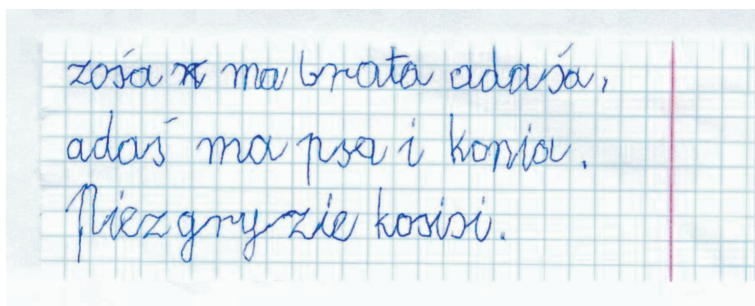 zośa n ma brata adaśa,
adaś ma psa i konia.
Piez gryzie kosisi.